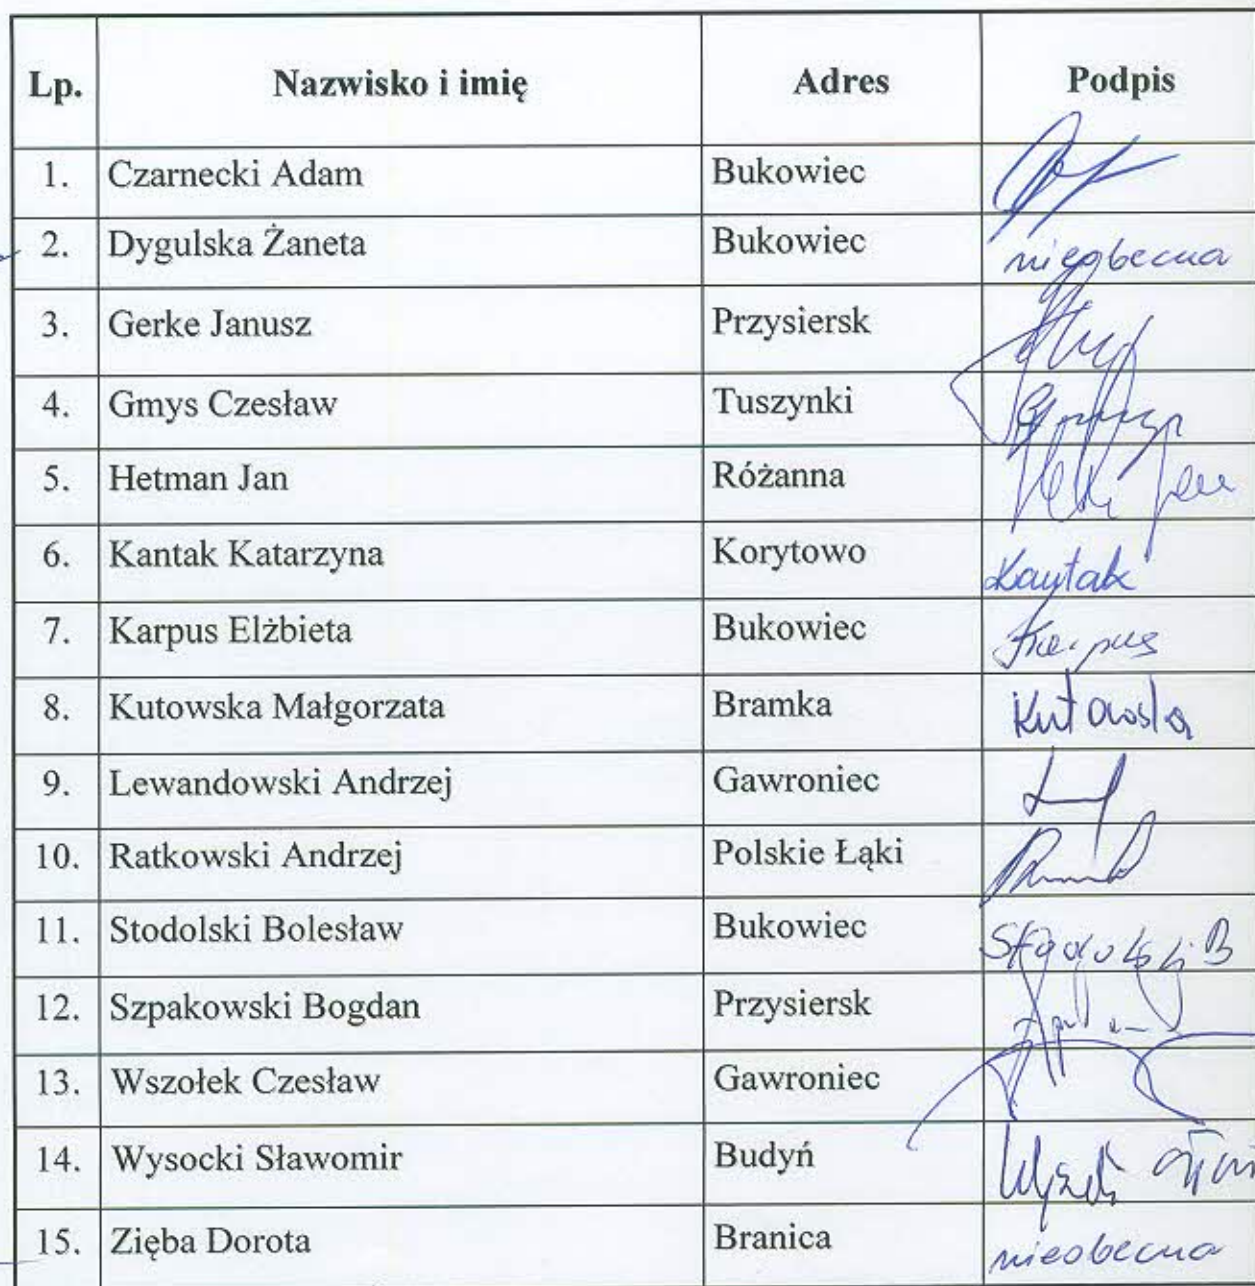 Lp. Nazwisko i imię Adres Podpis
1. Czarnecki Adam Bukowiec
2. Dygulska Żaneta Bukowiec nieobecna
3. Gerke Janusz Przysiersk
4. Gmys Czesław Tuszynki
5. Hetman Jan Różanna
6. Kantak Katarzyna Korytowo Kantak
7. Karpus Elżbieta Bukowiec Karpus
8. Kutowska Małgorzata Bramka Kutowska
9. Lewandowski Andrzej Gawroniec
10. Ratkowski Andrzej Polskie Łąki
11. Stodolski Bolesław Bukowiec Stodolski B
12. Szpakowski Bogdan Przysiersk
13. Wszołek Czesław Gawroniec
14. Wysocki Sławomir Budyń
15. Zięba Dorota Branica nieobecna